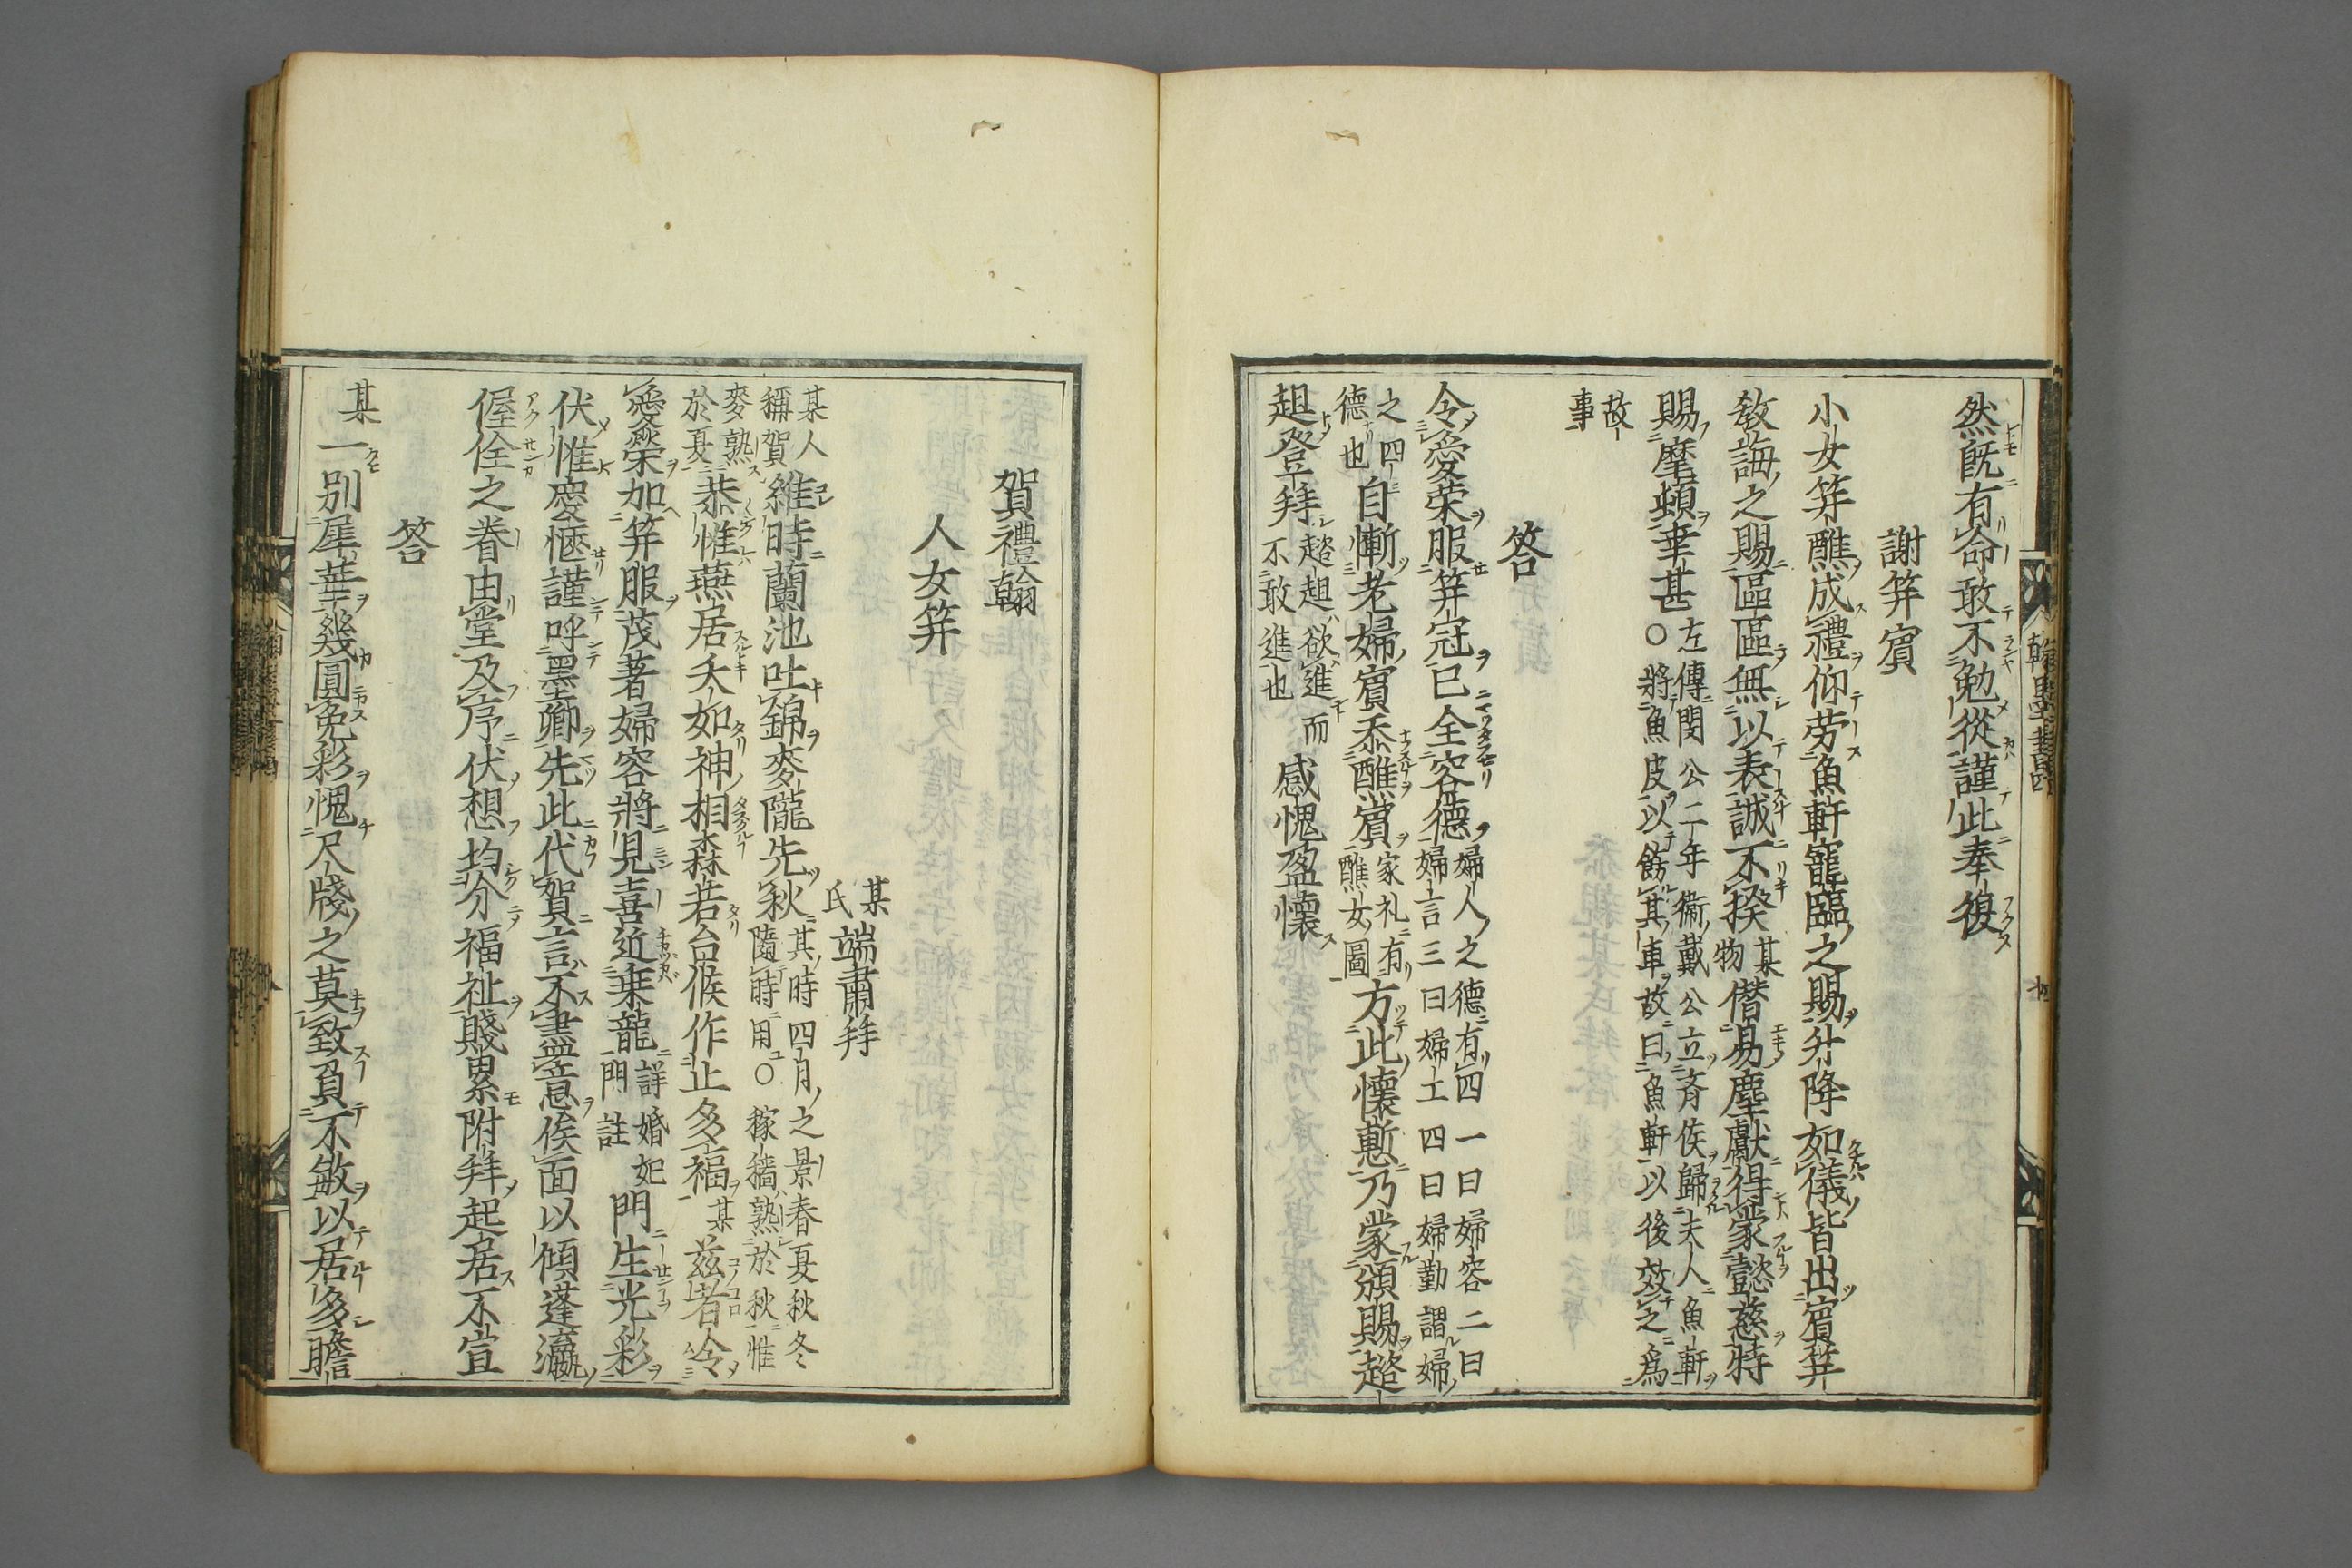 然既有命敢不勉從謹此奉復
謝笄賓
小女笄醮成禮仰劳魚軒寵臨之賜升降如儀皆出賓笄
敎誨之賜區區無以表誠不揆某物僭易塵獻得蒙懿慈特
賜麾頓幸甚○左傳閔公二年衞戴公立斉侯歸夫人魚軒
將魚皮以餝其車故曰魚軒以後效之爲
故事
答
令愛荣服笄冠已全容德婦人之德有四一曰婦容二曰
婦言三曰婦工四曰婦勤謂婦
之四德也自慚老婦賓忝醮賓家礼有醮女圖方此懷慙乃蒙頒賜趑
趄登拜趑趄欲進而不敢進也感愧盈懷
翰墨書四
賀禮翰
人女笄
某氏端肅拜
某人稱賀維時蘭池吐錦麥隴先秋其時四月之景春夏秋冬
隨時用○稼穡熟於秋惟
麥熟於夏恭惟燕居夭如神相森若台候作止多福某玆者令
愛榮加笄服茂著婦容將見喜近乗龍詳婚妃門註門生光彩
伏惟慶愜謹呼墨卿先此代賀言不盡意俟面以傾蓬瀛
偓佺之眷由堂及序伏想均介福祉賤累附拜起居不宣
答
某一别犀華幾圓兔彩愧尺牋之莫致負不敏以居多瞻